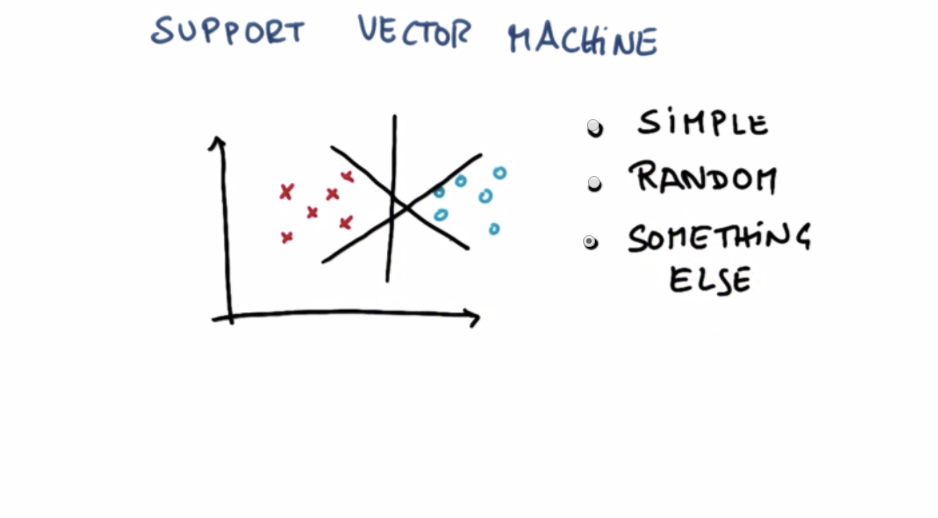 SUPPORT VECTOR MACHINE
SIMPLE
RANDOM
SOMETHING
ELSE